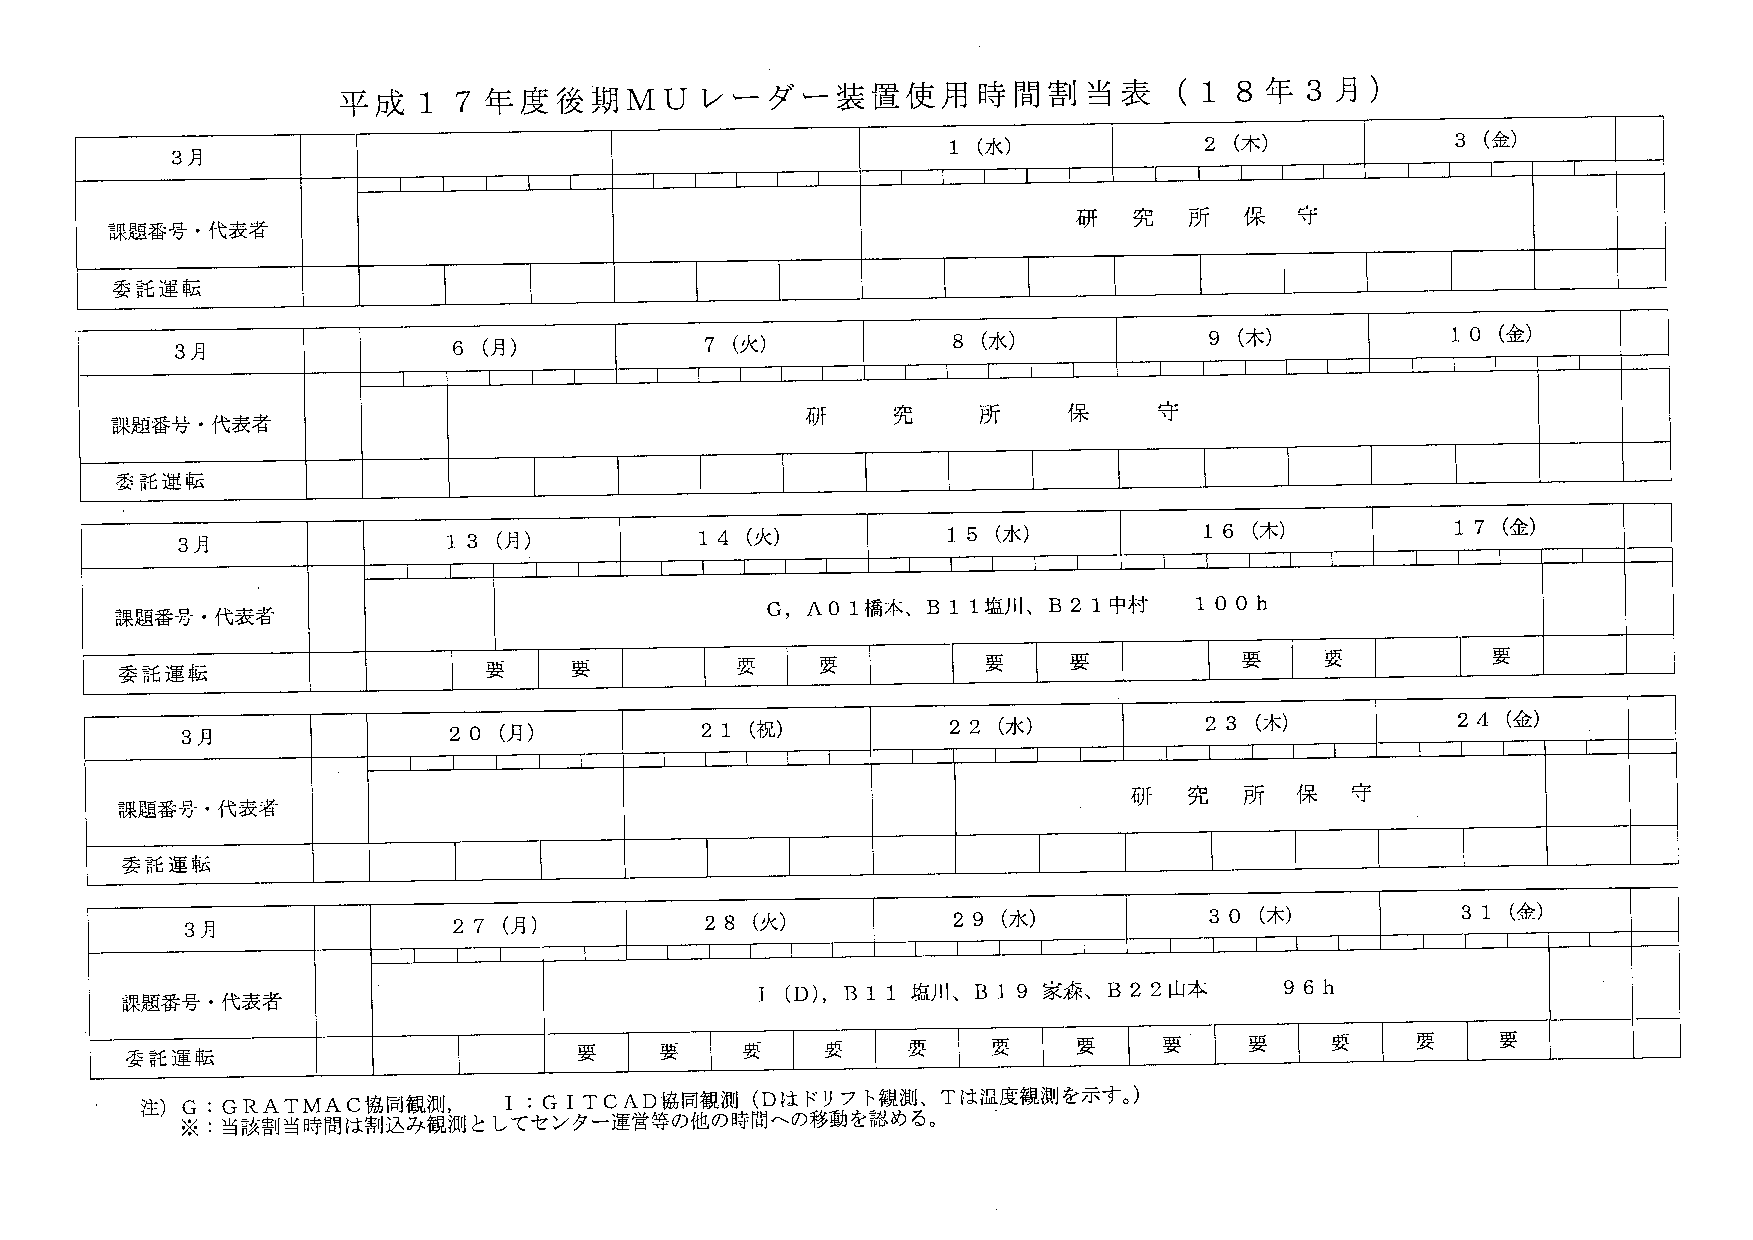 平成１７年度後期ＭＵレーダー装置使用時間割当表（１８年３月）
３月 １（水） ２（木） ３（金）
課題番号・代表者 研究所保守
委託運転
３月 ６（月） ７（火） ８（水） ９（木） １０（金）
課題番号・代表者 研究所保守
委託運転
３月 １３（月） １４（火） １５（水） １６（木） １７（金）
課題番号・代表者 Ｇ，Ａ０１橋本、Ｂ１１塩川、Ｂ２１中村 １００ｈ
委託運転 要 要 要 要 要 要 要 要 要
３月 ２０（月） ２１（祝） ２２（水） ２３（木） ２４（金）
課題番号・代表者 研究所保守
委託運転
３月 ２７（月） ２８（火） ２９（水） ３０（木） ３１（金）
課題番号・代表者 Ｉ（Ｄ），Ｂ１１ 塩川、Ｂ１９ 家森、Ｂ２２山本 ９６ｈ
委託運転 要 要 要 要 要 要 要 要 要 要 要 要
注）Ｇ：ＧＲＡＴＭＡＣ協同観測， Ｉ：ＧＩＴＣＡＤ協同観測（Ｄはドリフト観測、Ｔは温度観測を示す。）
※：当該割当時間は割込み観測としてセンター運営等の他の時間への移動を認める。